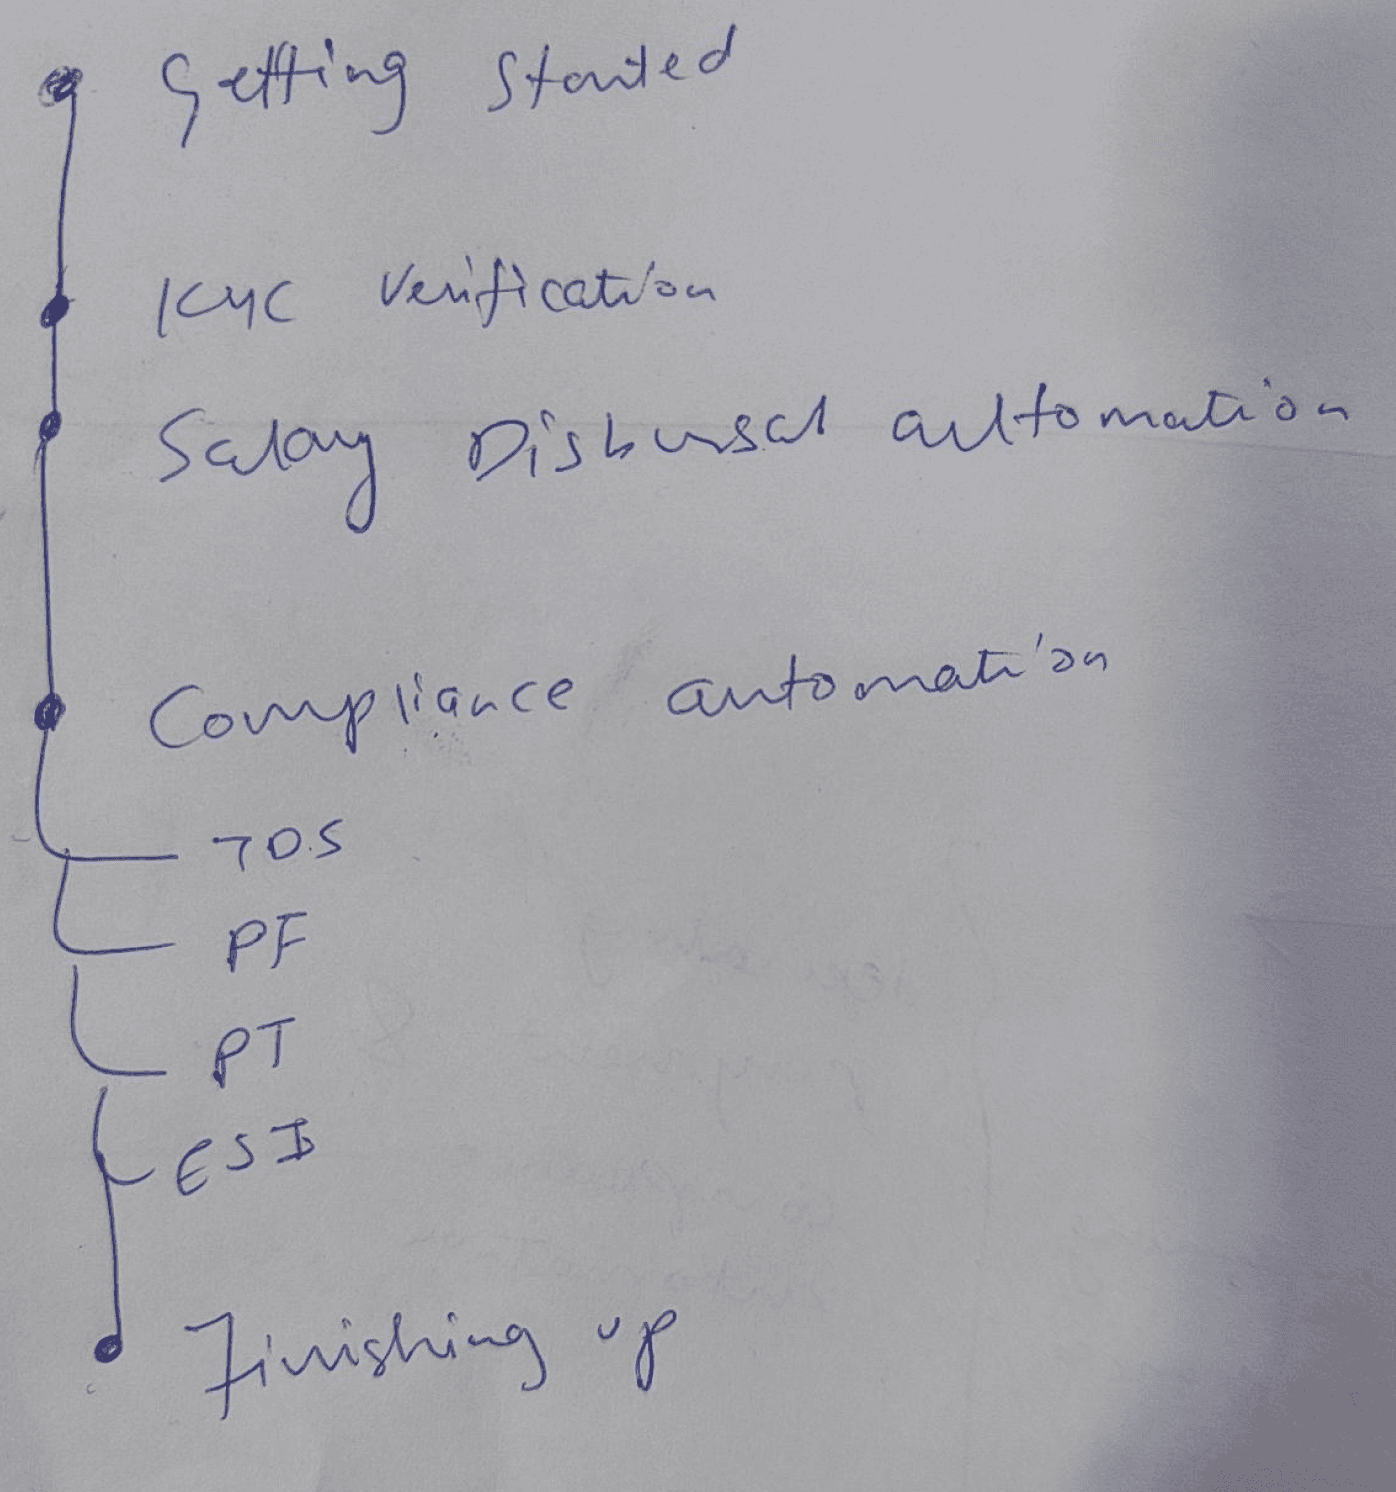 Getting Started
KYC Verification
Salary Disbursal automation
Compliance automation
TDS
PF
PT
ESI
Finishing up